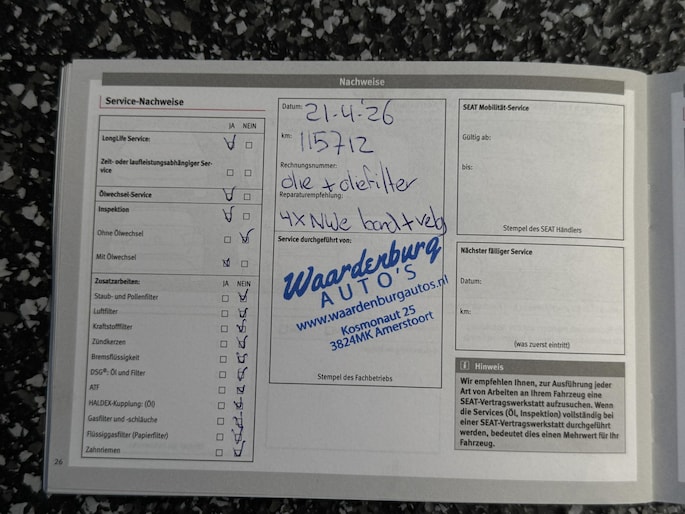 Nachweise
Service-Nachweise
JA NEIN
LongLife Service:
Zeit- oder laufleistungsabhängiger Ser-
vice
Ölwechsel-Service
Inspektion
Ohne Ölwechsel
Mit Ölwechsel
Zusatzarbeiten: JA NEIN
Staub- und Pollenfilter
Luftfilter
Kraftstofffilter
Zündkerzen
Bremsflüssigkeit
DSG®: Öl und Filter
ATF
HALDEX-Kupplung: (Öl)
Gasfilter und -schläuche
Flüssiggasfilter (Papierfilter)
Zahnriemen
26
Datum: 21-4-26
km: 115712
Rechnungsnummer:
olie + oliefilter
Reparaturempfehlung:
4x NWe band + velg
Service durchgeführt von:
Waardenburg
AUTO'S
www.waardenburgautos.nl
Kosmonaut 25
3824MK Amersfoort
Stempel des Fachbetriebs
SEAT Mobilität-Service
Gültig ab:
bis:
Stempel des SEAT Händlers
Nächster fälliger Service
Datum:
km:
(was zuerst eintritt)
i Hinweis
Wir empfehlen Ihnen, zur Ausführung jeder
Art von Arbeiten an Ihrem Fahrzeug eine
SEAT-Vertragswerkstatt aufzusuchen. Wenn
die Services (Öl, Inspektion) vollständig bei
einer SEAT-Vertragswerkstatt durchgeführt
werden, bedeutet dies einen Mehrwert für Ihr
Fahrzeug.